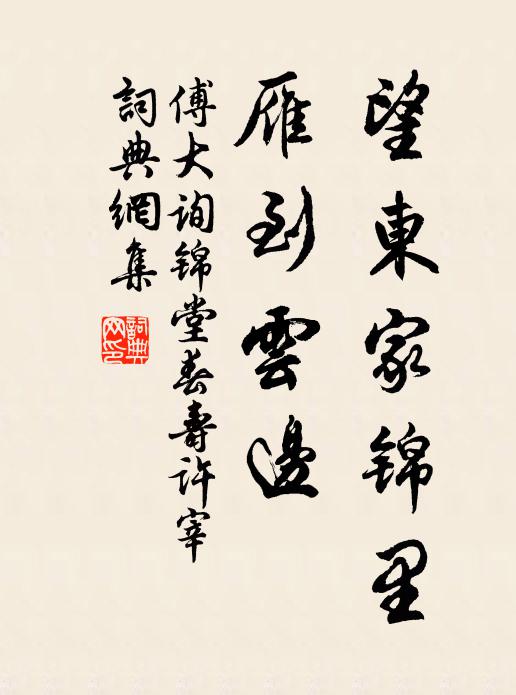 望東家錦里
雁到雲邊
傅大询锦堂春壽许宰
詞典網集
詞典
网印